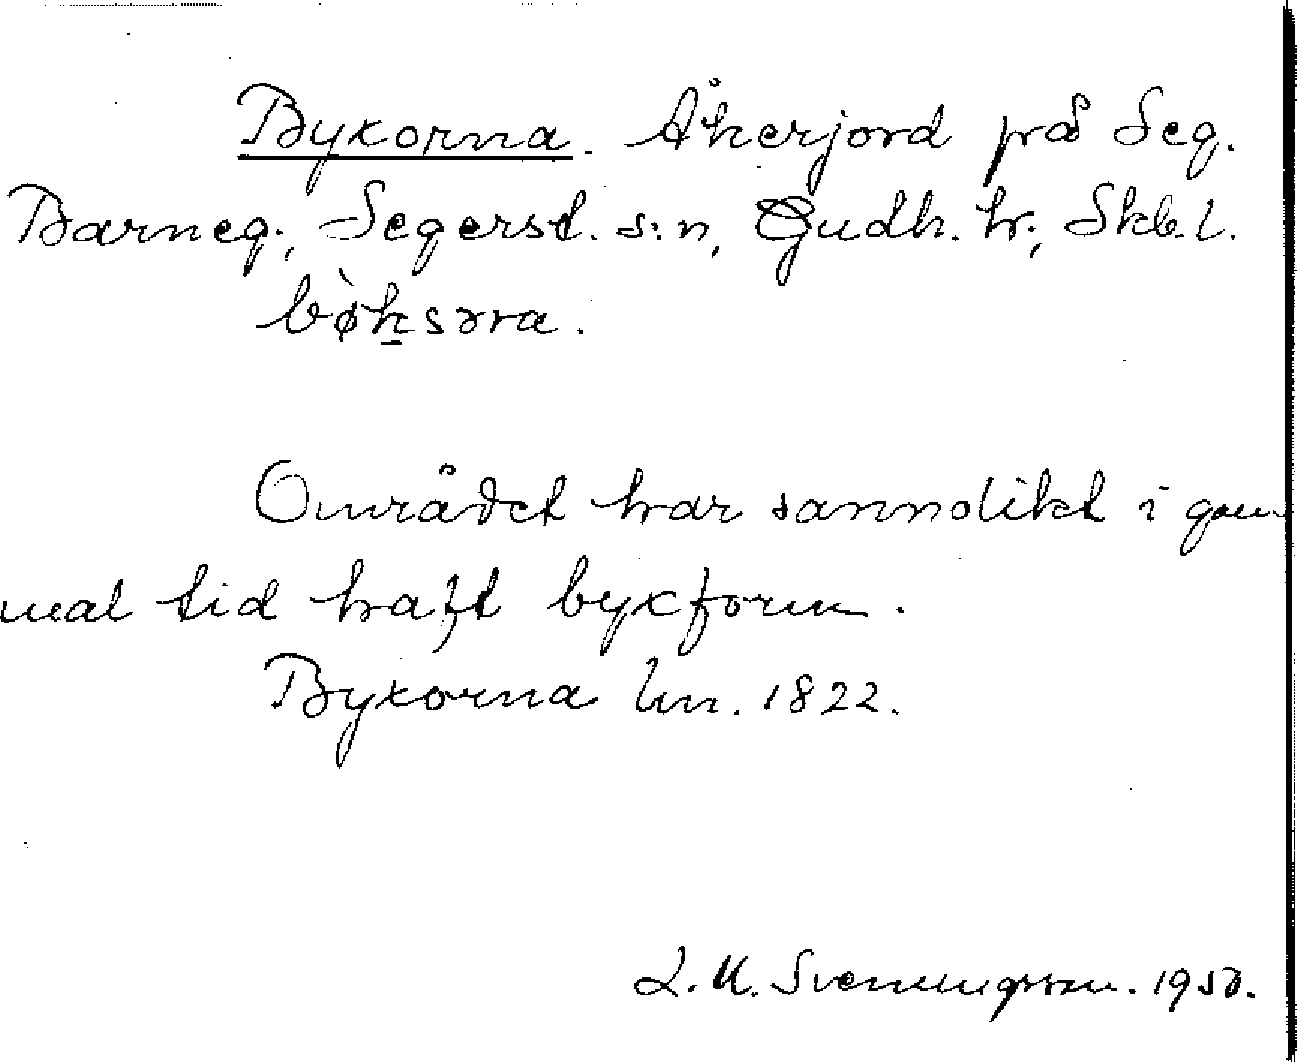 Byxorna. Åkerjord på Seg.
Barneg., Segerst. s:n, Gudh. hr., Skb.l.
bø̀k̠səra.
Området har sannolikt i gam-
mal tid haft byxform.
Byxorna lm. 1822.
L. M. Svenungsson. 1950.